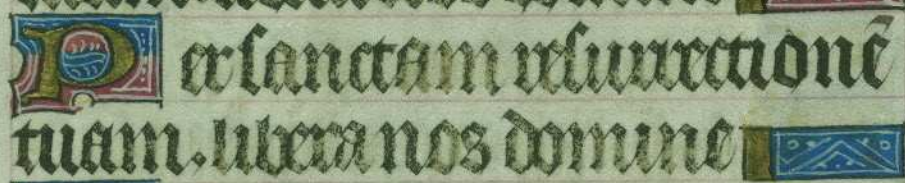 Per sanctam resurrectionē
tuam. libera nos domine